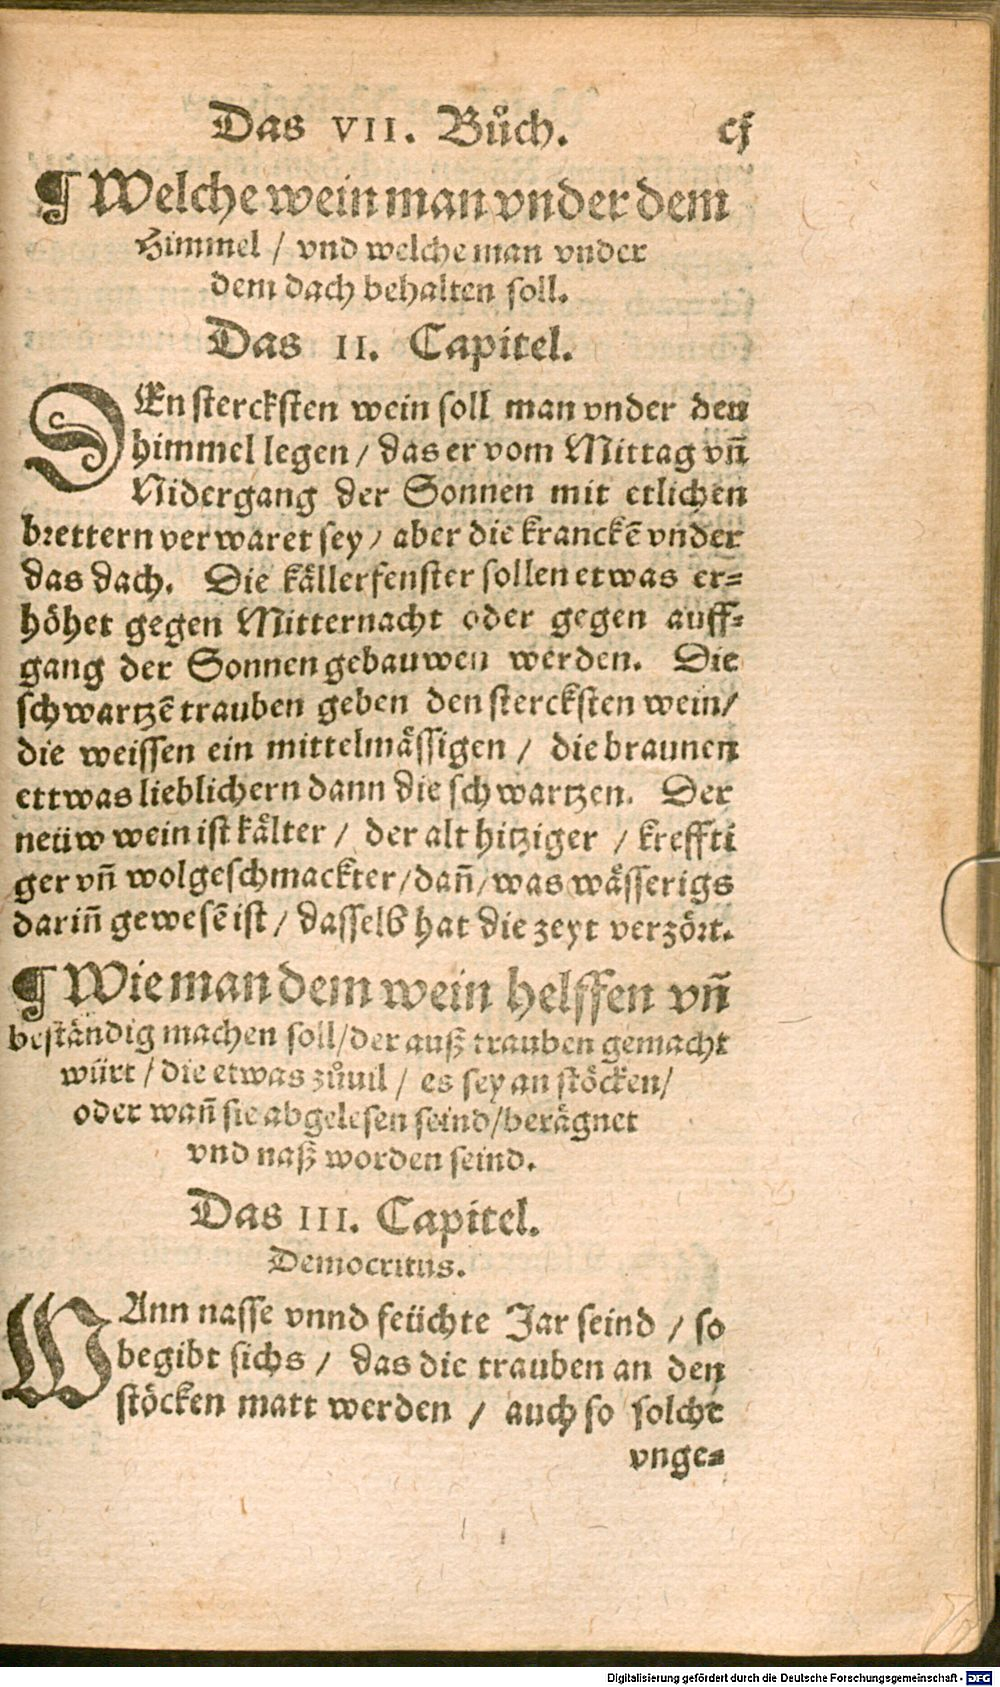 Das VII. Bůch. cj
¶ Welche wein man vnder dem
Himmel / vnd welche man vnder
dem dach behalten soll.
Das II. Capitel.
DEn stercksten wein soll man vnder den
himmel legen / das er vom Mittag vñ
Nidergang der Sonnen mit etlichen
brettern verwaret sey / aber die kranckē vnder
das dach. Die källerfenster sollen etwas er=
höhet gegen Mitternacht oder gegen auff=
gang der Sonnen gebauwen werden. Die
schwartzē trauben geben den stercksten wein /
die weissen ein mittelmässigen / die braunen
ettwas lieblichern dann die schwartzen. Der
neüw wein ist kälter / der alt hitziger / kreffti
ger vñ wolgeschmackter / dañ / was wässerigs
dariñ gewesē ist / dasselb hat die zeyt verzört.
¶ Wie man dem wein helffen vñ
beständig machen soll / der auß trauben gemacht
würt / die etwas zůuil / es sey an stöcken /
oder wañ sie abgelesen seind / berägnet
vnd naß worden seind.
Das III. Capitel.
Democritus.
WAnn nasse vnnd feüchte Jar seind / so
begibt sichs / das die trauben an den
stöcken matt werden / auch so solche
vnge=
Digitalisierung gefördert durch die Deutsche Forschungsgemeinschaft - DFG